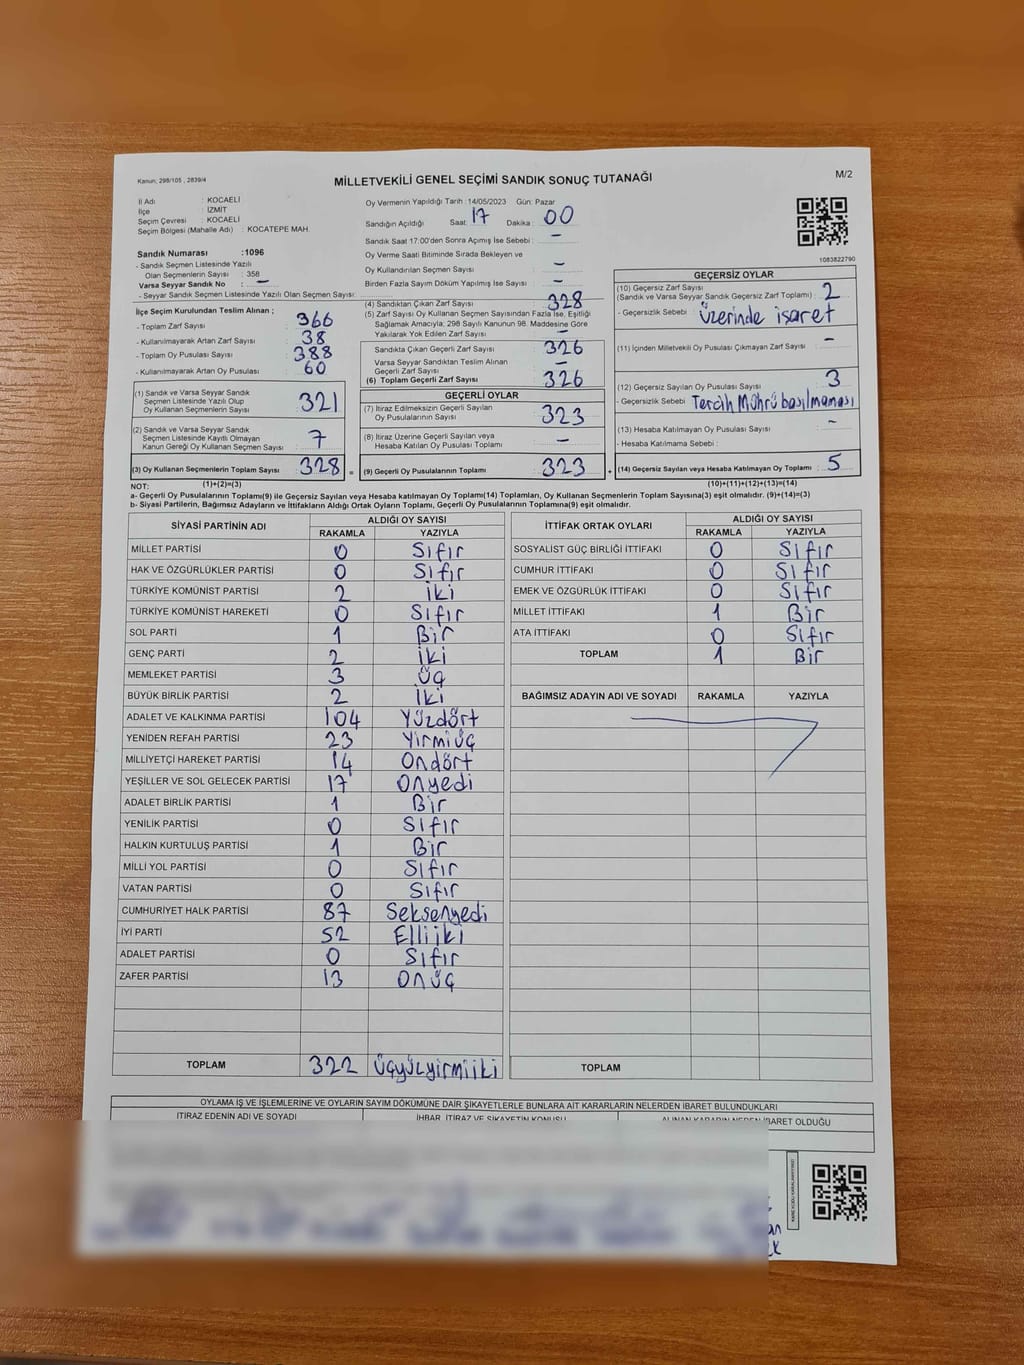 Kanun; 298/105 , 2839/4
MİLLETVEKİLİ GENEL SEÇİMİ SANDIK SONUÇ TUTANAĞI
M/2
İl Adı : KOCAELİ
İlçe : İZMİT
Seçim Çevresi : KOCAELİ
Seçim Bölgesi (Mahalle Adı) : KOCATEPE MAH.
Sandık Numarası :1096
- Sandık Seçmen Listesinde Yazılı
Olan Seçmenlerin Sayısı : 358
Varsa Seyyar Sandık No : -
- Seyyar Sandık Seçmen Listesinde Yazılı Olan Seçmen Sayısı:
Oy Vermenin Yapıldığı Tarih :14/05/2023 Gün: Pazar
Sandığın Açıldığı Saat: 17 Dakika : 00
Sandık Saat 17:00'den Sonra Açımış İse Sebebi : -
Oy Verme Saati Bitiminde Sırada Bekleyen ve
Oy Kullandırılan Seçmen Sayısı : -
Birden Fazla Sayım Döküm Yapılmış İse Sayısı : -
1083822790
İlçe Seçim Kurulundan Teslim Alınan ;
- Toplam Zarf Sayısı : 366
- Kullanılmayarak Artan Zarf Sayısı : 38
- Toplam Oy Pusulası Sayısı : 388
- Kullanılmayarak Artan Oy Pusulası : 60
(1) Sandık ve Varsa Seyyar Sandık
Seçmen Listesinde Yazılı Olup
Oy Kullanan Seçmenlerin Sayısı : 321
(2) Sandık ve Varsa Seyyar Sandık
Seçmen Listesinde Kayıtlı Olmayan
Kanun Gereği Oy Kullanan Seçmen Sayısı : 7
(3) Oy Kullanan Seçmenlerin Toplam Sayısı : 328 =
(1)+(2)=(3)
(4) Sandıktan Çıkan Zarf Sayısı : 328
(5) Zarf Sayısı Oy Kullanan Seçmen Sayısından Fazla İse, Eşitliği
Sağlamak Amacıyla; 298 Sayılı Kanunun 98. Maddesine Göre
Yakılarak Yok Edilen Zarf Sayısı : -
Sandıkta Çıkan Geçerli Zarf Sayısı : 326
Varsa Seyyar Sandıktan Teslim Alınan
Geçerli Zarf Sayısı : -
(6) Toplam Geçerli Zarf Sayısı : 326
GEÇERLİ OYLAR
(7) İtiraz Edilmeksizin Geçerli Sayılan
Oy Pusulalarının Sayısı : 323
(8) İtiraz Üzerine Geçerli Sayılan veya
Hesaba Katılan Oy Pusulası Toplamı : -
(9) Geçerli Oy Pusulalarının Toplamı : 323 +
GEÇERSİZ OYLAR
(10) Geçersiz Zarf Sayısı : 2
(Sandık ve Varsa Seyyar Sandık Geçersiz Zarf Toplamı)
- Geçersizlik Sebebi : Üzerinde işaret
(11) İçinden Milletvekili Oy Pusulası Çıkmayan Zarf Sayısı : -
(12) Geçersiz Sayılan Oy Pusulası Sayısı : 3
- Geçersizlik Sebebi : Tercih Mührü basılmaması
(13) Hesaba Katılmayan Oy Pusulası Sayısı : -
- Hesaba Katılmama Sebebi :
(14) Geçersiz Sayılan veya Hesaba Katılmayan Oy Toplamı : 5
(10)+(11)+(12)+(13)=(14)
NOT:
a- Geçerli Oy Pusulalarının Toplamı(9) ile Geçersiz Sayılan veya Hesaba katılmayan Oy Toplamı(14) Toplamları, Oy Kullanan Seçmenlerin Toplam Sayısına(3) eşit olmalıdır. (9)+(14)=(3)
b- Siyasi Partilerin, Bağımsız Adayların ve İttifakların Aldığı Ortak Oyların Toplamı, Geçerli Oy Pusulalarının Toplamına(9) eşit olmalıdır.
SİYASİ PARTİNİN ADI ALDIĞI OY SAYISI
RAKAMLA YAZIYLA
MİLLET PARTİSİ 0 Sıfır
HAK VE ÖZGÜRLÜKLER PARTİSİ 0 Sıfır
TÜRKİYE KOMÜNİST PARTİSİ 2 İki
TÜRKİYE KOMÜNİST HAREKETİ 0 Sıfır
SOL PARTİ 1 Bir
GENÇ PARTİ 2 İki
MEMLEKET PARTİSİ 3 Üç
BÜYÜK BİRLİK PARTİSİ 2 İki
ADALET VE KALKINMA PARTİSİ 104 Yüzdört
YENİDEN REFAH PARTİSİ 23 Yirmiüç
MİLLİYETÇİ HAREKET PARTİSİ 14 Ondört
YEŞİLLER VE SOL GELECEK PARTİSİ 17 Onyedi
ADALET BİRLİK PARTİSİ 1 Bir
YENİLİK PARTİSİ 0 Sıfır
HALKIN KURTULUŞ PARTİSİ 1 Bir
MİLLİ YOL PARTİSİ 0 Sıfır
VATAN PARTİSİ 0 Sıfır
CUMHURİYET HALK PARTİSİ 87 Seksenyedi
İYİ PARTİ 52 Elliiki
ADALET PARTİSİ 0 Sıfır
ZAFER PARTİSİ 13 Onüç
TOPLAM 322 Üçyüzyirmiiki
İTTİFAK ORTAK OYLARI ALDIĞI OY SAYISI
RAKAMLA YAZIYLA
SOSYALİST GÜÇ BİRLİĞİ İTTİFAKI 0 Sıfır
CUMHUR İTTİFAKI 0 Sıfır
EMEK VE ÖZGÜRLÜK İTTİFAKI 0 Sıfır
MİLLET İTTİFAKI 1 Bir
ATA İTTİFAKI 0 Sıfır
TOPLAM 1 Bir
BAĞIMSIZ ADAYIN ADI VE SOYADI RAKAMLA YAZIYLA
TOPLAM
OYLAMA İŞ VE İŞLEMLERİNE VE OYLARIN SAYIM DÖKÜMÜNE DAİR ŞİKAYETLERLE BUNLARA AİT KARARLARIN NELERDEN İBARET BULUNDUKLARI
İTİRAZ EDENİN ADI VE SOYADI İHBAR, İTİRAZ VE ŞİKAYETİN KONUSU ALINAN KARARIN NEDEN İBARET OLDUĞU